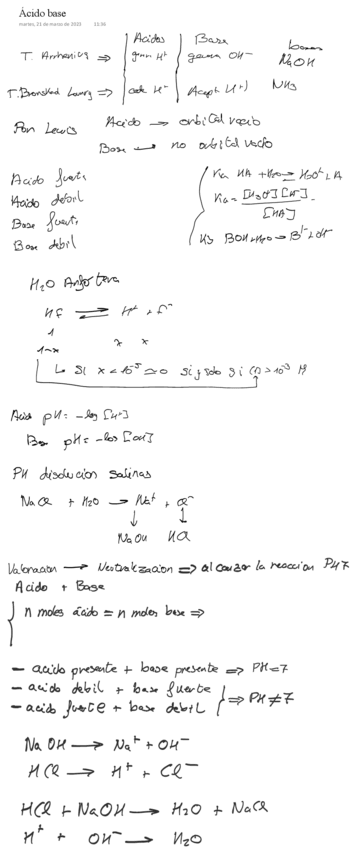 Ácido base
martes, 21 de marzo de 2023 13:36
Acidos Base bases
T. Arrhenius ⇒ generan H⁺ generan OH⁻ NaOH
T. Bronsted Lowry ⇒ cede H⁺ Acept (H⁺) NH3
Por Lewis Acido → orbital vacio
Base → no orbital vacio
Acido fuerte Ka HA + H2O ⇌ H3O⁺ + A
Acido debil Ka = [H3O⁺][A⁻] / [HA]
Base fuerte
Base debil Kb BOH + H2O → B⁺ + OH⁻
H2O Anfotera
HF ⇌ H⁺ + F⁻
1
1-x x x
↳ Si x < 10⁻⁵ ≃ 0 si y solo si > 10⁻³ M
Acido pH = -log [H⁺]
Base pH = -log [OH]
PH disolucion salinas
NaCl + H2O → Na⁺ + Cl⁻
↓ ↓
NaOH HCl
Valoracion → Neutralizacion ⇒ al canzar la reaccion PH 7
Acido + Base
n moles ácido = n moles base ⇒
- acido presente + base presente ⇒ PH=7
- acido debil + base fuerte
- acido fuerte + base debil ⇒ PH≠7
NaOH → Na⁺ + OH⁻
HCl → H⁺ + Cl⁻
HCl + NaOH → H2O + NaCl
H⁺ + OH⁻ → H2O